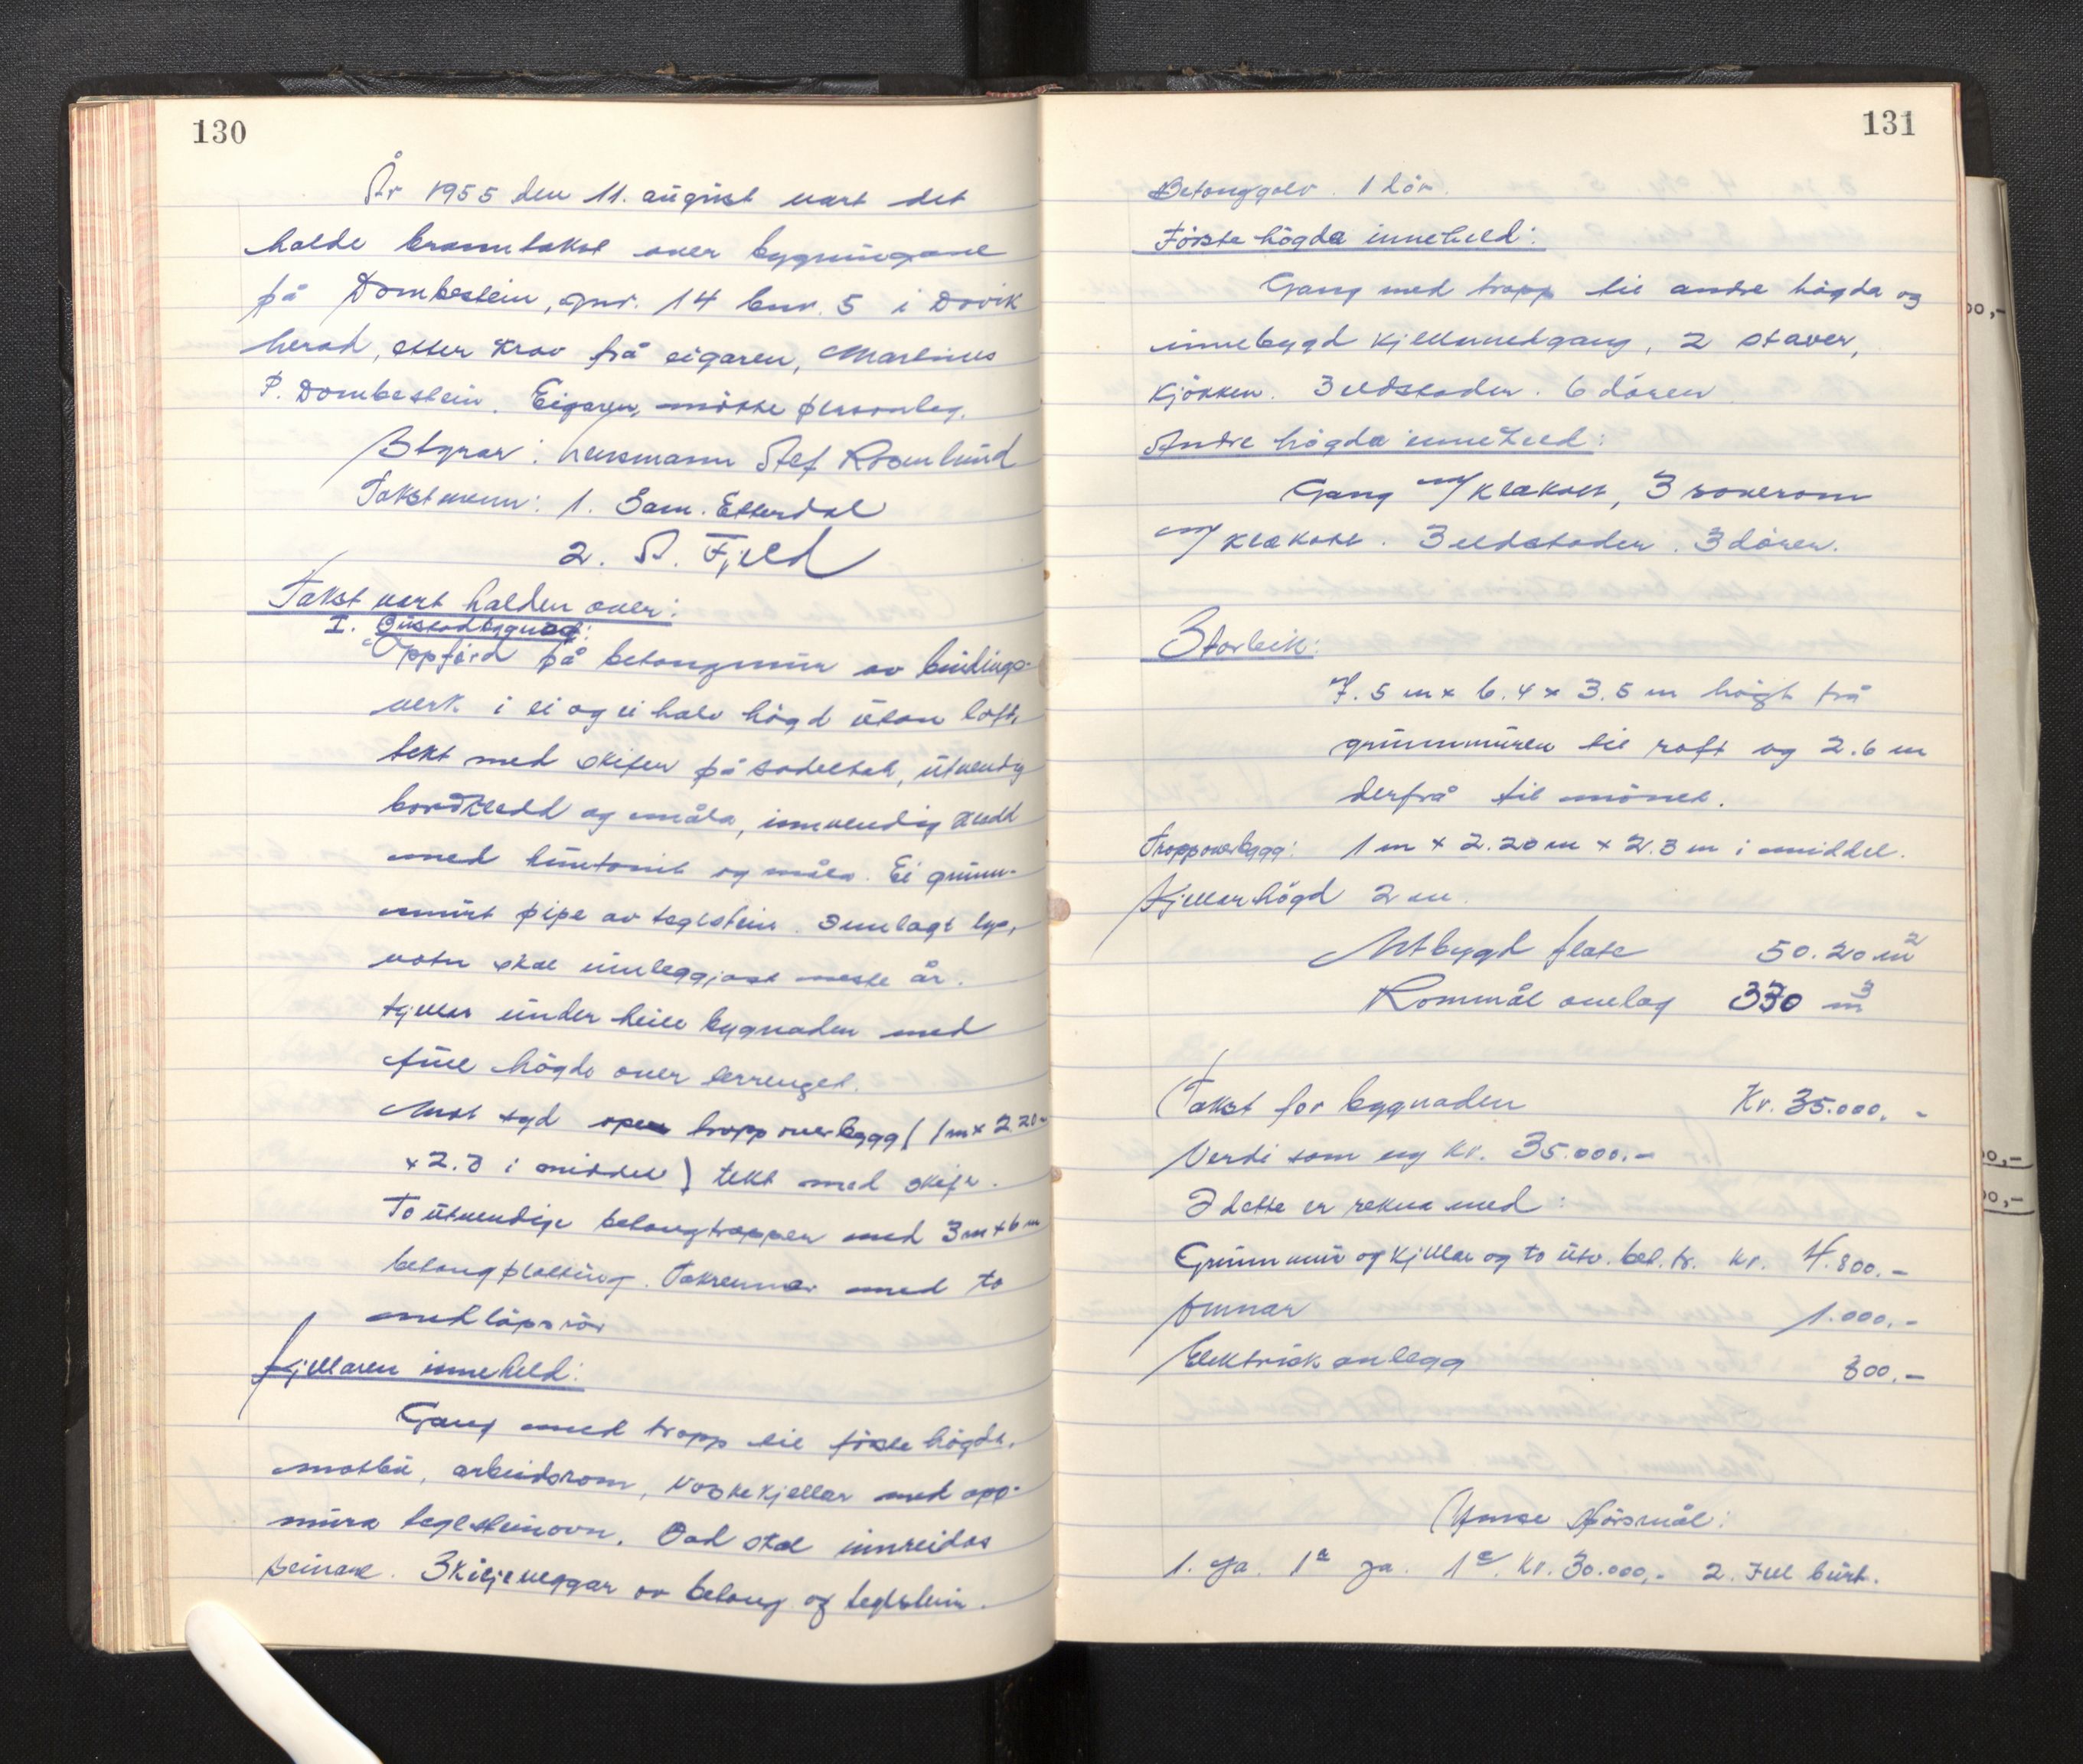 130
År 1955 den 11. august vart det
halde branntakst over bygningane
på Dombestein, gnr. 14 bnr. 5 i Davik
herad, etter krav frå eigaren, Martinus
P. Dombestein. Eigaren møtte personleg.
Styrar: lensmann Alf Rosenlund
Takstmenn: 1. Sam. Etterdal
2. A. Fjeld
Takst vart halden over:
I. Bustadbygnad:
Oppførd på betongmur av bindings-
verk i ei og ei halv høgd utan loft,
tekt med skifer på sadeltak, utvendig
bordkledd og måla, innvendig kledd
med huntonit og måla. Ei grunn-
murt pipe av teglstein. Innlagt lys,
vatn skal innleggjast neste år.
Kjellar under heile bygnaden med
full høgde over terrenget.
Mot syd open trappoverbygg (1 m x 2.20
x 2.3 i middel) tekt med skifer.
To utvendige betongtrapper med 3 m x 6 m
betongplatting. Takrennor med to
nedløpsrør
Kjellaren inneheld:
Gang med trapp til første høgda,
matbu, arbeidsrom, vaskekjellar med opp-
mura teglsteinovn. Bad skal innreidas
seinare. Skiljeveggar av betong og teglstein.
131
Betonggolv. 1 dør.
Første høgda inneheld:
Gang med trapp til andre høgda og
innebygd kjellarnedgang, 2 stover,
kjøkken. 3 eldstader. 6 dører
Andre høgda inneheld:
Gang m/kleskott, 3 soverom
m/kleskott. 3 eldstader. 3 dører.
Storleik:
7.5 m x 6.4 x 3.5 m høgt frå
grunnmuren til raft og 2.6 m
derfrå til mønet.
Trappoverbygg: 1 m x 2.20 m x 2.3 m i middel.
Kjellarhøgd 2 m.
Utbygd flate 50.20 m²
Rommål omlag 330 m³
Takst for bygnaden Kr. 35.000.-
Verdi som ny kr. 35.000.-
I dette er rekna med:
Grunnmur og kjellar og to utv. bet. tr. kr. 4.800.-
Omnar 1.000.-
Elektrisk anlegg 800.-
Ymse spørsmål:
1. Ja. 1a ja. 1c. kr. 30.000,- 2. Fell burt.